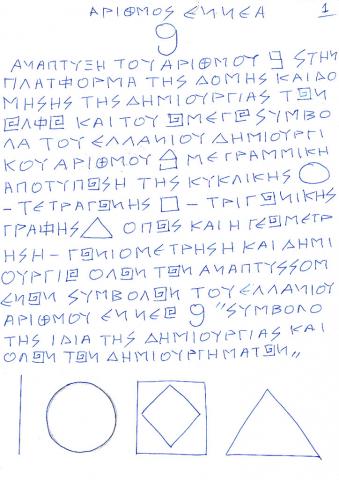 ΑΡΙΘΜΟΣ ΕΝΝΕΑ 1
9
ΑΝΑΠΤΥΞΗ ΤΟΥ ΑΡΙΘΜΟΥ 9 ΣΤΗΝ
ΠΛΑΤΦΟΡΜΑ ΤΗΣ ΔΟΜΗΣ ΚΑΙ ΔΟ
ΜΗΣΗΣ ΤΗΣ ΔΗΜΙΟΥΡΓΙΑΣ ΤΩΝ
ΑΛΦΑ ΚΑΙ ΤΟΥ ΩΜΕΓΑ ΣΥΜΒΟ
ΛΑ ΤΟΥ ΕΛΛΑΝΙΟΥ ΔΗΜΙΟΥΡΓΙ
ΚΟΥ ΑΡΙΘΜΟΥ ΜΕ ΓΡΑΜΜΙΚΗ
ΑΠΟΤΥΠΩΣΗ ΤΗΣ ΚΥΚΛΙΚΗΣ
- ΤΕΤΡΑΓΩΝΗΣ - ΤΡΙΓΩΝΙΚΗΣ
ΓΡΑΦΗΣ ΟΠΩΣ ΚΑΙ Η ΓΕΩΜΕΤΡ
ΗΣΗ - ΓΩΝΙΟΜΕΤΡΗΣΗ ΚΑΙ ΔΗΜΙ
ΟΥΡΓΙΑ ΟΛΩΝ ΤΩΝ ΑΝΑΠΤΥΣΣΟΜ
ΕΝΩΝ ΣΥΜΒΟΛΩΝ ΤΟΥ ΕΛΛΑΝΙΟΥ
ΑΡΙΘΜΟΥ ΕΝΝΕΑ 9 "ΣΥΜΒΟΛΟ
ΤΗΣ ΙΔΙΑ ΤΗΣ ΔΗΜΙΟΥΡΓΙΑΣ ΚΑΙ
ΟΛΩΝ ΤΩΝ ΔΗΜΙΟΥΡΓΗΜΑΤΩΝ„